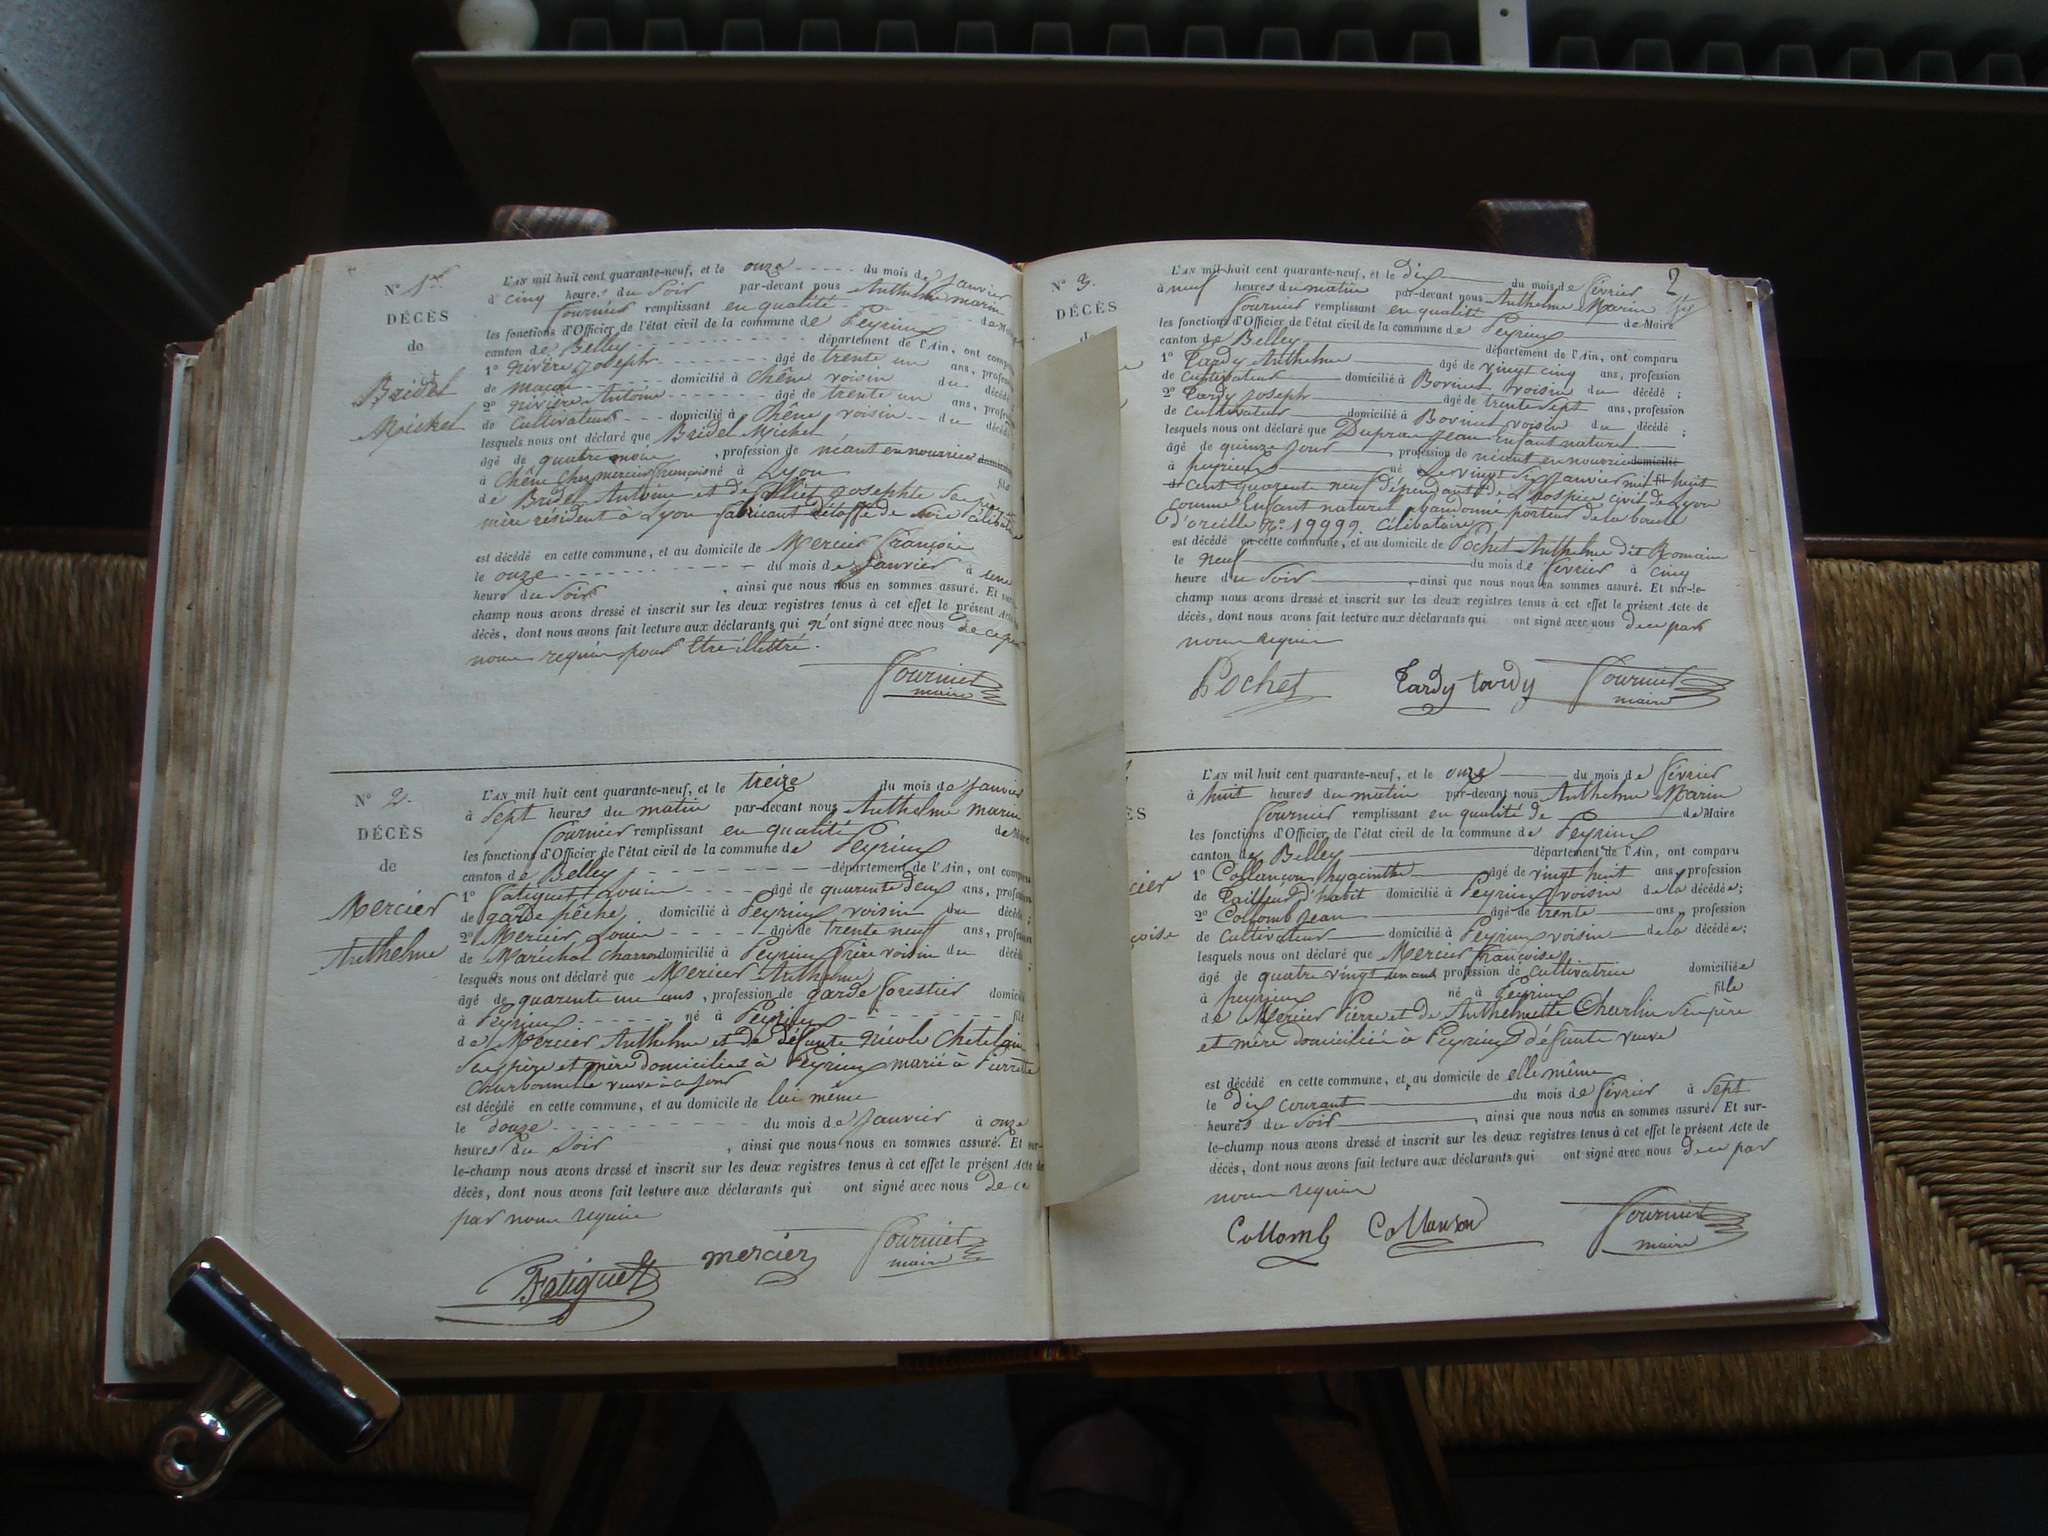 N° 1er
DÉCÈS
de
Bridel
Michel
L'AN mil huit cent quarante-neuf, et le onze du mois de Janvier
à cinq heures du Soir par-devant nous Anthelme marin
Fournier remplissant en qualité de Maire
les fonctions d'Officier de l'état civil de la commune de Peyrieux
canton de Belley département de l'Ain, ont comparu
1° Rivière Joseph âgé de trente un ans, profession
de maçon domicilié à Chêne voisin du décédé ;
2° Rivière Antoine âgé de trente un ans, profession
de Cultivateur domicilié à Chêne voisin du décédé
lesquels nous ont déclaré que Bridel Michel
âgé de quatre mois, profession de néant en nourrice domicilié
à Chêne Chez mercier François né à Lyon fils
de Bridel Antoine et de Josephte Ses père et
mère résident à Lyon fabricant d'étoffe de soie Célibataire
est décédé en cette commune, et au domicile de Mercier François
le onze du mois de Janvier à une
heure du Soir, ainsi que nous nous en sommes assuré. Et sur-le-
champ nous avons dressé et inscrit sur les deux registres tenus à cet effet le présent Acte de
décès, dont nous avons fait lecture aux déclarants qui n'ont signé avec nous de ce par
nous requis pour être illettré.
Fournier
maire
N° 2.
DÉCÈS
de
Mercier
Anthelme
L'AN mil huit cent quarante-neuf, et le treize du mois de Janvier
à Sept heures du matin par-devant nous Anthelme marin
Fournier remplissant en qualité de Maire
les fonctions d'Officier de l'état civil de la commune de Peyrieux
canton de Belley département de l'Ain, ont comparu
1° Fatiguet Louis âgé de quarente deux ans, profession
de garde pêche domicilié à Peyrieux voisin du décédé ;
2° Mercier Louis âgé de trente neuf ans, profession
de Maréchal charron domicilié à Peyrieux frère voisin du décédé ;
lesquels nous ont déclaré que Mercier Anthelme
âgé de quarente un ans, profession de garde forestier domicilié
à Peyrieux né à Peyrieux fils
de Mercier Anthelme et de défunte Nicole Chatelain
Ses père et mère domiciliés à Peyrieux marié à Pierrette
Charbonnet
est décédé en cette commune, et au domicile de lui même
le douze du mois de Janvier à onze
heures du Soir, ainsi que nous nous en sommes assuré. Et sur-
le-champ nous avons dressé et inscrit sur les deux registres tenus à cet effet le présent Acte de
décès, dont nous avons fait lecture aux déclarants qui ont signé avec nous de ce
par nous requis
Fatiguet mercier Fournier
maire
2
N° 3.
DÉCÈS
L'AN mil huit cent quarante-neuf, et le dix du mois de février
à neuf heures du matin par-devant nous Anthelme Marin
Fournier remplissant en qualité de Maire
les fonctions d'Officier de l'état civil de la commune de Peyrieux
canton de Belley département de l'Ain, ont comparu
1° Tardy Anthelme âgé de vingt cinq ans, profession
de Cultivateur domicilié à Bovinet voisin du décédé ;
2° Tardy Joseph âgé de trente sept ans, profession
de Cultivateur domicilié à Bovinet voisin du décédé ;
lesquels nous ont déclaré que Dupras Jean Enfant naturel
âgé de quinze Jour, profession de néant en nourrice domicilié
à peyrieux né Le vingt Six Janvier mil fil huit
Cent quarente neuf dépendant de L'hospice civil de Lyon
comme Enfant naturel abandonné porteur de la boucle
d'oreille N° 19999. Célibataire
est décédé en cette commune, et au domicile de Pochet Anthelme dit Romain
le neuf du mois de février à cinq
heure du Soir, ainsi que nous nous en sommes assuré. Et sur-le-
champ nous avons dressé et inscrit sur les deux registres tenus à cet effet le présent Acte de
décès, dont nous avons fait lecture aux déclarants qui ont signé avec nous de ce par
nous requis
Pochet Tardy tardy Fournier
maire
L'AN mil huit cent quarante-neuf, et le onze du mois de février
à huit heures du matin par-devant nous Anthelme Marin
Fournier remplissant en qualité de de Maire
les fonctions d'Officier de l'état civil de la commune de Peyrieux
canton de Belley département de l'Ain, ont comparu
1° Collançon hyacinthe âgé de vingt huit ans, profession
de Tailleur d'habit domicilié à Peyrieux voisin de la décédée;
2° Collomb Jean âgé de trente ans, profession
de Cultivateur domicilié à Peyrieux voisin de la décédée;
lesquels nous ont déclaré que Mercier Françoise
âgé de quatre vingt un ans profession de Cultivatrice domiciliée
à peyrieux né à Peyrieux fille
de Mercier Pierre et de Anthelmette Charlin Ses père
et mère domiciliée à Peyrieux défunte veuve
est décédé en cette commune, et au domicile de elle même
le dix courant du mois de février à Sept
heures du Soir, ainsi que nous nous en sommes assuré. Et sur-
le-champ nous avons dressé et inscrit sur les deux registres tenus à cet effet le présent Acte de
décès, dont nous avons fait lecture aux déclarants qui ont signé avec nous de ce par
nous requis
Collomb Collanson Fournier
maire